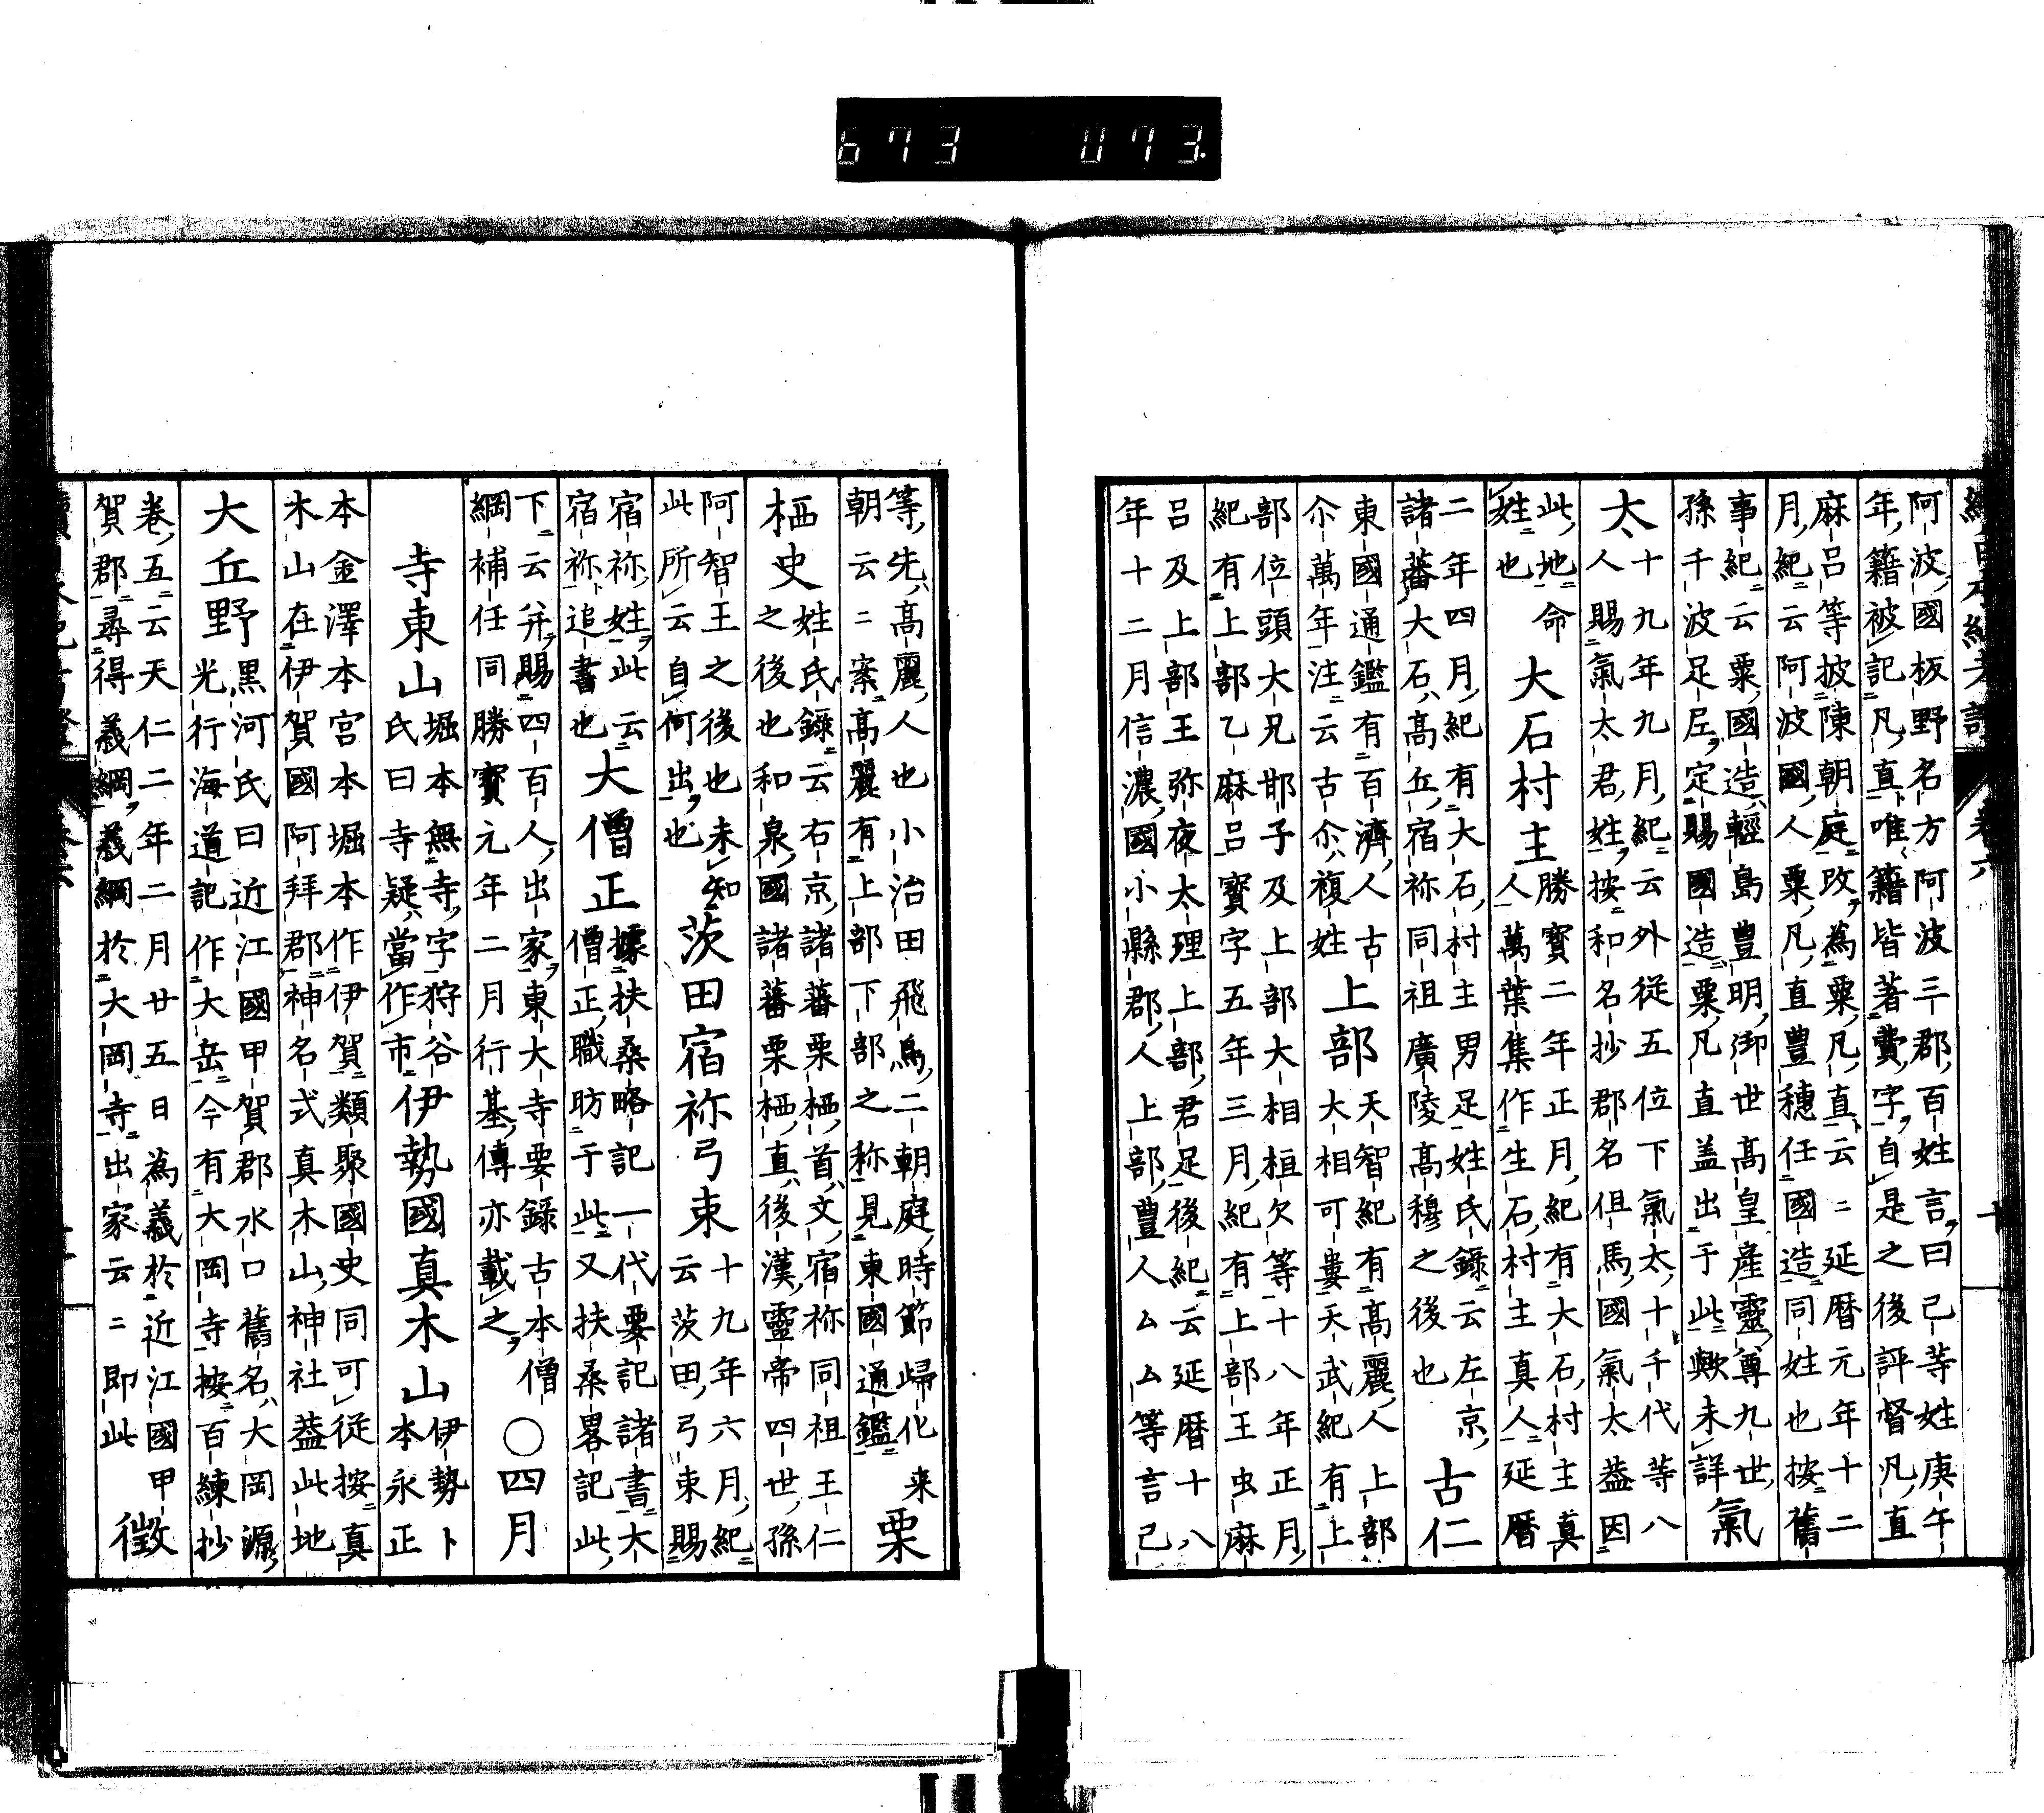 673 073.
阿波國板野名方阿波三郡百姓言曰己等姓庚午
年籍被記凡直唯籍皆著費字自是之後評督凡直
麻呂等披陳朝庭改為粟凡直云〻延暦元年十二
月紀云阿波國人粟凡直豊穗任國造同姓也按舊
事紀云粟國造輕島豊明御世高皇產靈尊九世
孫千波足尼定賜國造粟凡直盖出于此歟未詳 氣
太 十九年九月紀云外從五位下氣太十千代等八
人賜氣太君姓按和名抄郡名但馬國氣太盖因
此地命
姓也 大石村主 勝寶二年正月紀有大石村主真
人萬葉集作生石村主真人延暦
二年四月紀有大石村主男足姓氏錄云左京
諸蕃大石髙丘宿祢同祖廣陵髙穆之後也 古仁
東國通鑑有百濟人古
尒萬年注云古尒複姓 上部 天智紀有髙麗人上部
大相可婁天武紀有上
部位頭大兄邯子及上部大相桓欠等十八年正月
紀有上部乙麻呂寳字五年三月紀有上部王虫麻
呂及上部王弥夜太理上部君足後紀云延暦十八
年十二月信濃國小縣郡人上部豊人ムム等言己
等先髙麗人也小治田飛鳥二朝庭時節歸化来
朝云〻案髙麗有上部下部之称見東國通鑑 栗
栖史 姓氏錄云右京諸蕃栗栖首文宿祢同祖王仁
之後也和泉國諸蕃栗栖直後漢靈帝四世孫
阿智王之後也未知
此所云自何出也 茨田宿祢弓束 十九年六月紀
云茨田弓束賜
宿祢姓此云
宿祢追書也 大僧正 據扶桑略記一代要記諸書大
僧正職昉于此又扶桑畧記此
下云并賜四百人出家東大寺要錄古本僧
綱補任同勝寳元年二月行基傳亦載之 〇四月
寺東山 堀本無寺字狩谷
氏曰寺疑當作市 伊勢國真木山 伊勢卜
本永正
本金澤本宮本堀本作伊賀類聚國史同可從按真
木山在伊賀國阿拜郡神名式真木山神社葢此地
大丘野 黒河氏曰近江國甲賀郡水口舊名大岡源
光行海道記作大岳今有大岡寺按百練抄
卷五云天仁二年二月廿五日為義於近江國甲
賀郡尋得義綱義綱於大岡寺出家云〻即此 徴